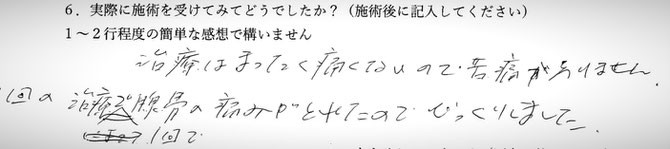 6．実際に施術を受けてみてどうでしたか？（施術後に記入してください）
1～2行程度の簡単な感想で構いません
治療はまったく痛くないので苦痛がありません。
1回の治療で腰骨の痛みがとれたのでびっくりしました。
1回で